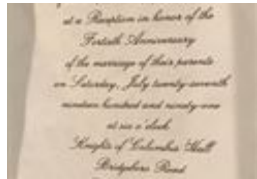 at a Reception in honor of the
Fortieth Anniversary
of the marriage of their parents
on Saturday, July twenty-seventh
nineteen hundred and ninety-one
at six o'clock
Knights of Columbus Hall
Road